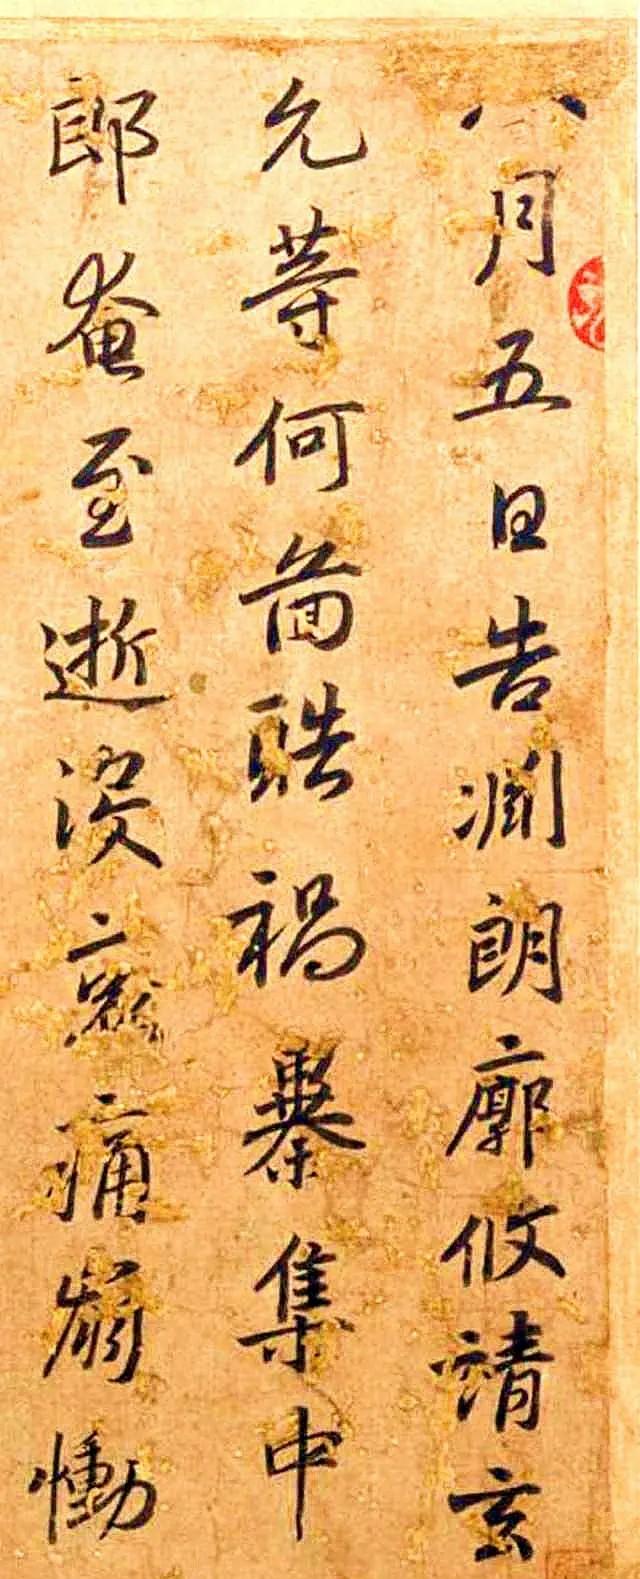 八月五日告淵朗廓攸靖玄
允等何圖酷禍暴集中
郎奄至逝没哀痛崩慟